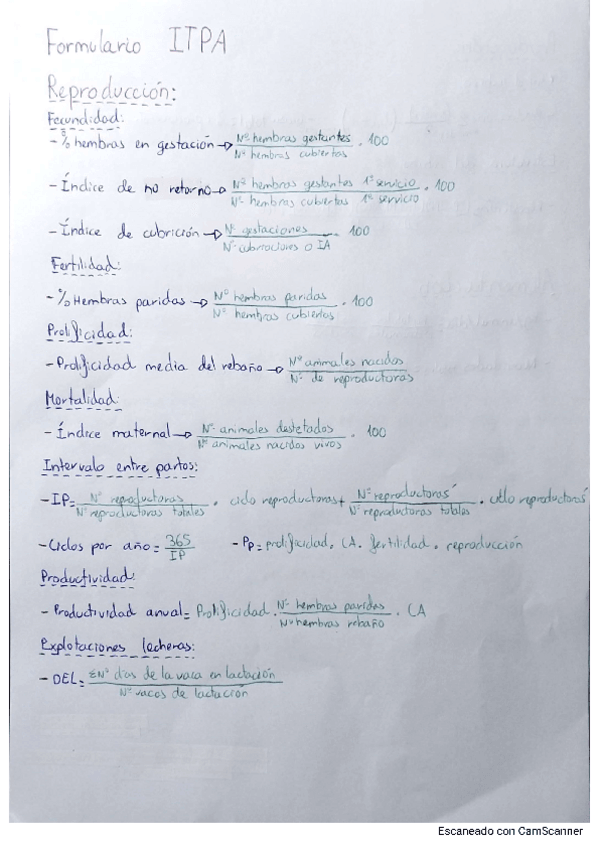 Formulario ITPA
Reproducción:
Fecundidad:
- % hembras en gestación → Nº hembras gestantes / Nº hembras cubiertas . 100
- Índice de no retorno → Nº hembras gestantes 1º servicio / Nº hembras cubiertas 1º servicio . 100
- Índice de cubrición → Nº gestaciones / Nº cubriciones o IA . 100
Fertilidad:
- % Hembras paridas → Nº hembras paridas / Nº hembras cubiertas . 100
Prolificidad:
- Prolificidad media del rebaño → Nº animales nacidos / Nº de reproductoras
Mortalidad:
- Índice maternal → Nº animales destetados / Nº animales nacidos vivos . 100
Intervalo entre partos:
- IP = Nº reproductoras / Nº reproductoras totales . ciclo reproductoras + Nº reproductoras' / Nº reproductoras totales . ciclo reproductoras'
- Ciclos por año = 365 / IP - Pp = prolificidad . CA . fertilidad . reproducción
Productividad:
- Productividad anual = Prolificidad . Nº hembras paridas / Nº hembras rebaño . CA
Explotaciones lecheras:
- DEL = ΣNº días de la vaca en lactación / Nº vacas de lactación
Escaneado con CamScanner